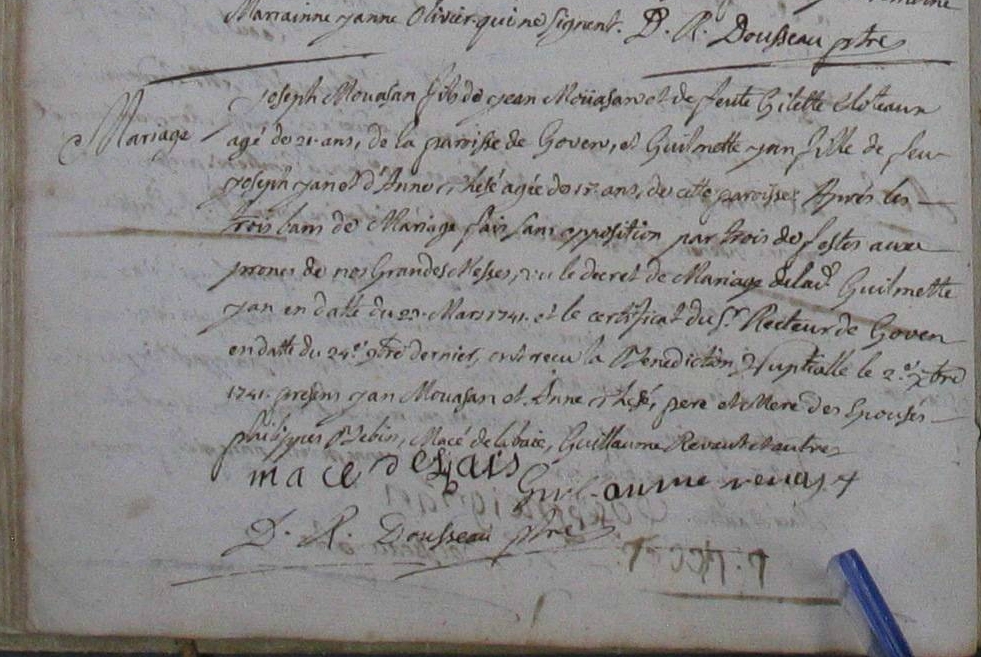 Marianne yanne Olivier qui ne signent. D. R. Dousseau ptre
Mariage
Joseph Moüasan fils de yean Moüasan et de feüe Gilette
agé de 21 ans, de la paroisse de Goven, et Guilmette yan fille de feu
yoseph yan et d'Anne Thesé agée de 17 ans, de cette paroisse; Après les
trois bans de Mariage fais sans opposition par trois de festes aux
prones de nos Grandes Messes, vu le decret de Mariage de lad. Guilmette
yan en datte du Mars 1741. et le certificat du Sr. Recteur de Goven
en datte du 24e. 9bre dernier, ont recu la Benediction Nuptialle le 2e. Xbre
1741. presens yan Mouasan et Anne Thesé, pere et Mere des Epousés
philippes Bebin, Macé de labaie, Guillaume Revaut et autres
mace
Guillaume
D. R. Dousseau ptre